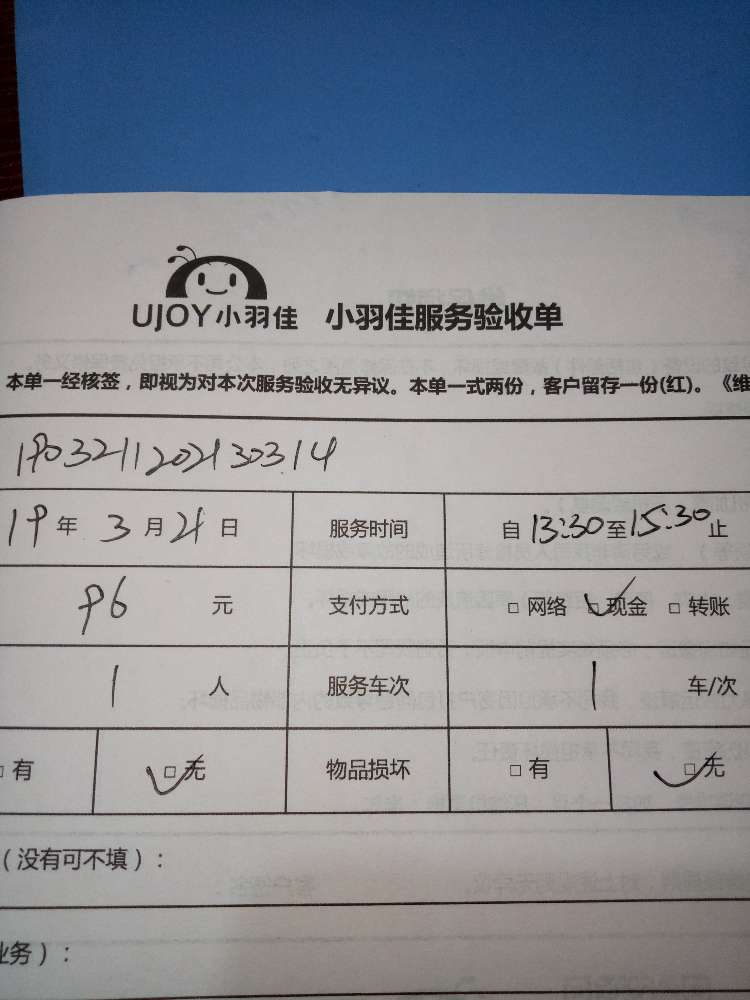 UJOY小羽佳 小羽佳服务验收单
本单一经核签，即视为对本次服务验收无异议。本单一式两份，客户留存一份(红)。《维
190321120213030314
19年 3月21日 服务时间 自13:30至15:30止
96 元 支付方式 □网络 □现金 □转账
1 人 服务车次 1 车/次
□有 □无 物品损坏 □有 □无
（没有可不填）：
业务）：